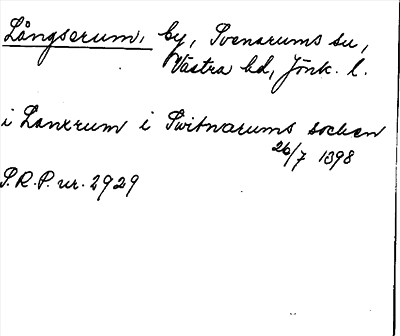 Långserum, by, Svenarums sn,
Västra hd, Jönk. l.
i Lanxrum i Switnarums socken
26/7 1398
S.R.P. nr. 2929